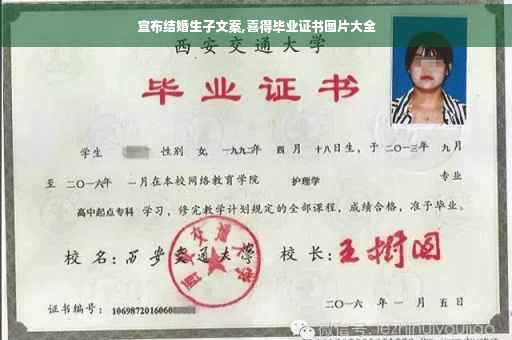 宣布结婚生子文案,喜得毕业证书图片大全
西安交通大学
毕业证书
学生 性别 女, 一九九二年 四 月 十八日生, 于 二〇一三年 九月
至 二〇一六年 一月在本校网络教育学院 护理学 专业
高中起点专科 学习, 修完教学计划规定的全部课程, 成绩合格, 准予毕业。
校 名: 西安交通大学 校 长: 王树国
西安交通大学
证书编号: 1069872016060
二〇一六 年 一 月 五 日
微信号: jiezhinuiyoujiao